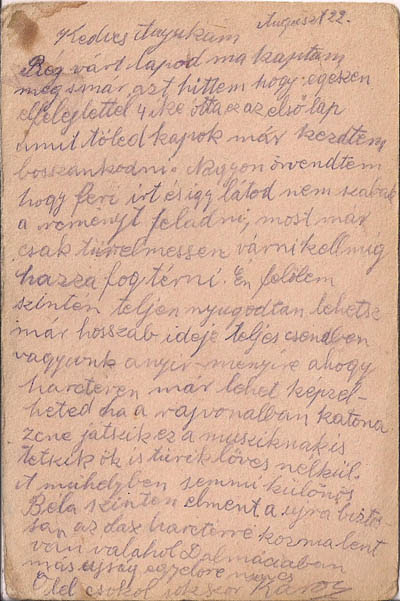 August 22.
Kedves Anyukám
Rég várt lapod ma kaptam
meg smár azt hittem hogy egészen
elfelejtettél 4 ike ótta ez az első lap
amit tőled kapok már kezdtem
bosszankodni. Nagyon örvendtem
hogy feri írt és így látod nem szabab
a reményt feladni, most mar
csak türelmessen várni kell mig
hazza fog térni. Én felőlem
szintén teljen nyugodtan lehetsz
már hosszab ideje teljes csendben
vagyunk anyir-menyire ahogy
harcteren mar lehet képzel-
heted ha a rajvonalban katona
zene játszik ez a muszkának is
tetszik ők is türik lövés nélkül.
it mühelyben semmi különös
Béla szintén elment a
san az harctérré
van valahol Dalmáciában
más ujság egyelőre nincs
Ölel csokol sokszor Károly